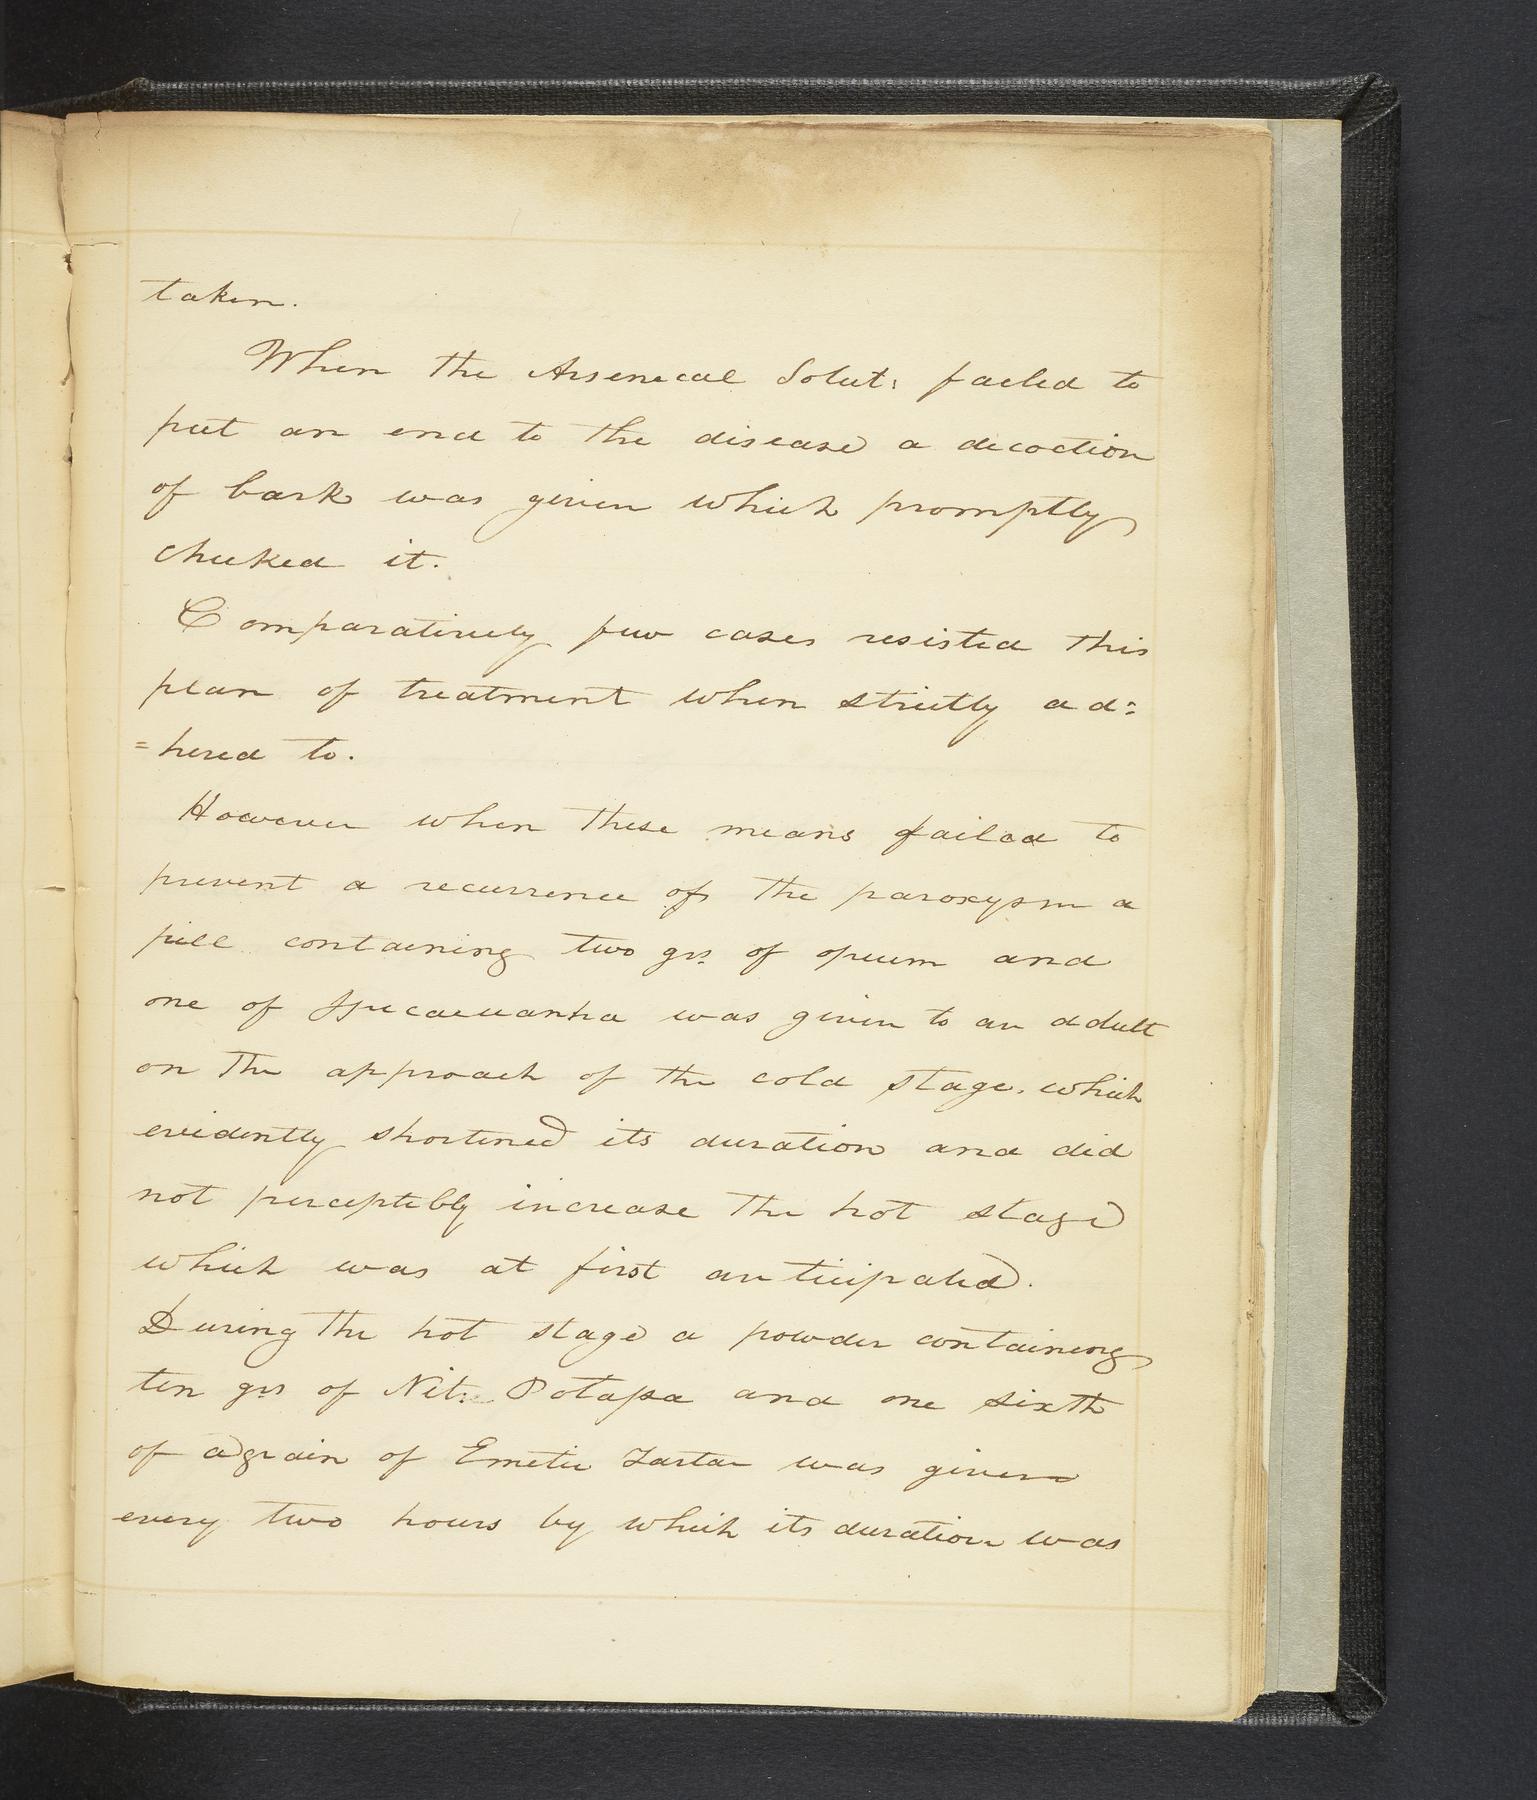 taken.
When the Arsenecal Solut: failed to
put an end to the disease a decoction
of bark was given which promptly
checked it.
Comparatively few cases resisted this
plan of treatment when strictly ad=
=hered to.
However when these means failed to
prevent a recurrence of the paroxysm a
pill containing two grs of opium and
one of Ipecacuanha was given to an adult
on the approach of the cold stage. which
evidently shortened its duration and did
not perceptibly increase the hot stage
which was at first anticipated.
During the hot stage a powder containing
ten grs of Nit: Potassa and one sixth
of a grain of Emetic Tartar was given
every two hours by which its duration was